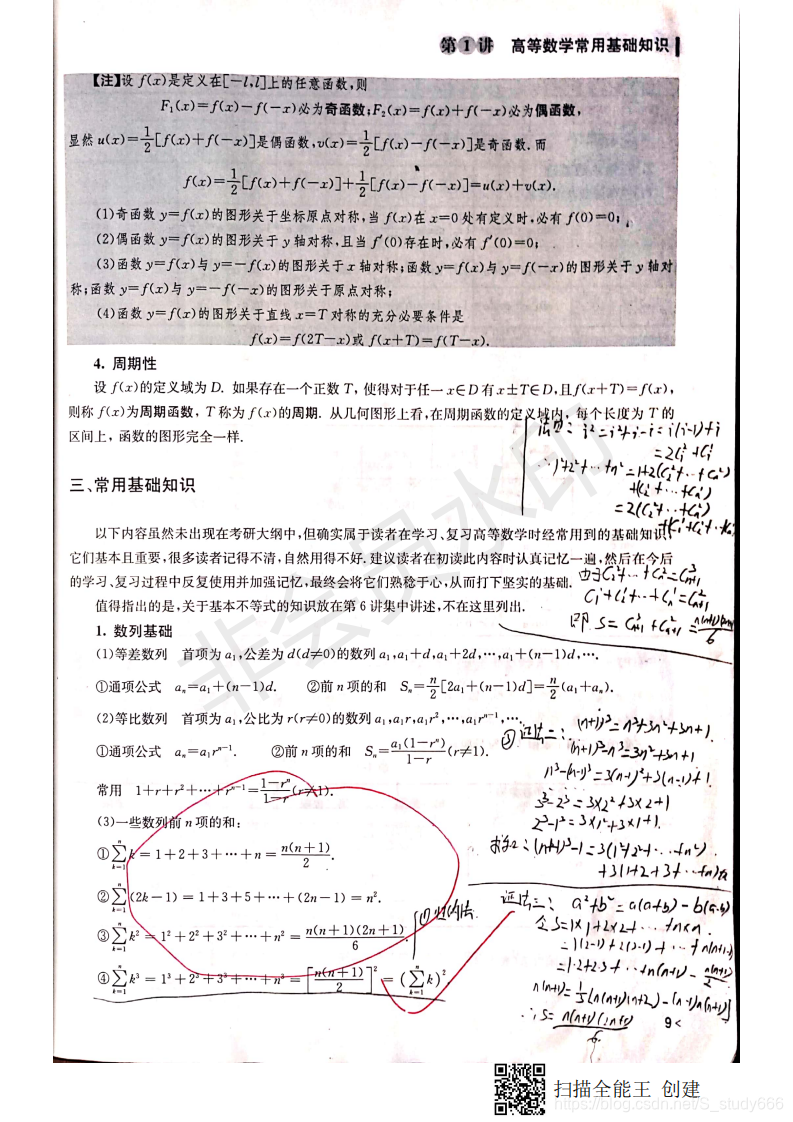 第1讲 高等数学常用基础知识
【注】设 f(x)是定义在[-l,l]上的任意函数,则
F₁(x)=f(x)-f(-x)必为奇函数;F₂(x)=f(x)+f(-x)必为偶函数,
显然 u(x)=1/2[f(x)+f(-x)]是偶函数,v(x)=1/2[f(x)-f(-x)]是奇函数.而
f(x)=1/2[f(x)+f(-x)]+1/2[f(x)-f(-x)]=u(x)+v(x).
(1)奇函数 y=f(x)的图形关于坐标原点对称,当 f(x)在 x=0 处有定义时,必有 f(0)=0;
(2)偶函数 y=f(x)的图形关于 y 轴对称,且当 f′(0)存在时,必有 f′(0)=0;
(3)函数 y=f(x)与 y=-f(x)的图形关于 x 轴对称;函数 y=f(x)与 y=f(-x)的图形关于 y 轴对
称;函数 y=f(x)与 y=-f(-x)的图形关于原点对称;
(4)函数 y=f(x)的图形关于直线 x=T 对称的充分必要条件是
f(x)=f(2T-x)或 f(x+T)=f(T-x).
4. 周期性
设 f(x)的定义域为 D. 如果存在一个正数 T, 使得对于任一 x∈D 有 x±T∈D,且 f(x+T)=f(x),
则称 f(x)为周期函数, T 称为 f(x)的周期. 从几何图形上看,在周期函数的定义域内, 每个长度为 T 的
区间上, 函数的图形完全一样.
i²=i²+i-i=i(i-1)+i
三、常用基础知识
以下内容虽然未出现在考研大纲中,但确实属于读者在学习、复习高等数学时经常用到的基础知识,
它们基本且重要,很多读者记得不清,自然用得不好.建议读者在初读此内容时认真记忆一遍,然后在今后
的学习、复习过程中反复使用并加强记忆,最终会将它们熟稔于心,从而打下坚实的基础.
值得指出的是,关于基本不等式的知识放在第 6 讲集中讲述,不在这里列出.
1. 数列基础
(1)等差数列 首项为 a₁,公差为 d(d≠0)的数列 a₁,a₁+d,a₁+2d,⋯,a₁+(n-1)d,⋯.
①通项公式 aₙ=a₁+(n-1)d. ②前 n 项的和 Sₙ=n/2[2a₁+(n-1)d]=n/2(a₁+aₙ).
(2)等比数列 首项为 a₁,公比为 r(r≠0)的数列 a₁,a₁r,a₁r²,⋯,a₁rⁿ⁻¹,⋯.
①通项公式 aₙ=a₁rⁿ⁻¹. ②前 n 项的和 Sₙ=a₁(1-rⁿ)/(1-r)(r≠1).
常用 1+r+r²+⋯+rⁿ⁻¹=(1-rⁿ)/(1-r)(r≠1).
(3)一些数列前 n 项的和:
①∑ₖ₌₁ⁿ k=1+2+3+⋯+n=n(n+1)/2.
②∑ₖ₌₁ⁿ (2k-1)=1+3+5+⋯+(2n-1)=n².
③∑ₖ₌₁ⁿ k²=1²+2²+3²+⋯+n²=n(n+1)(2n+1)/6.
④∑ₖ₌₁ⁿ k³=1³+2³+3³+⋯+n³=[n(n+1)/2]²=(∑ₖ₌₁ⁿ k)²
证法二: (n+1)³=n³+3n²+3n+1.
(n+1)³-n³=3n²+3n+1
n³-(n-1)³=3(n-1)²+3(n-1)+1
3³-2³=3×2²+3×2+1
2³-1³=3×1²+3×1+1.
9
非会员水印
扫描全能王 创建
https://blog.csdn.net/S_study666